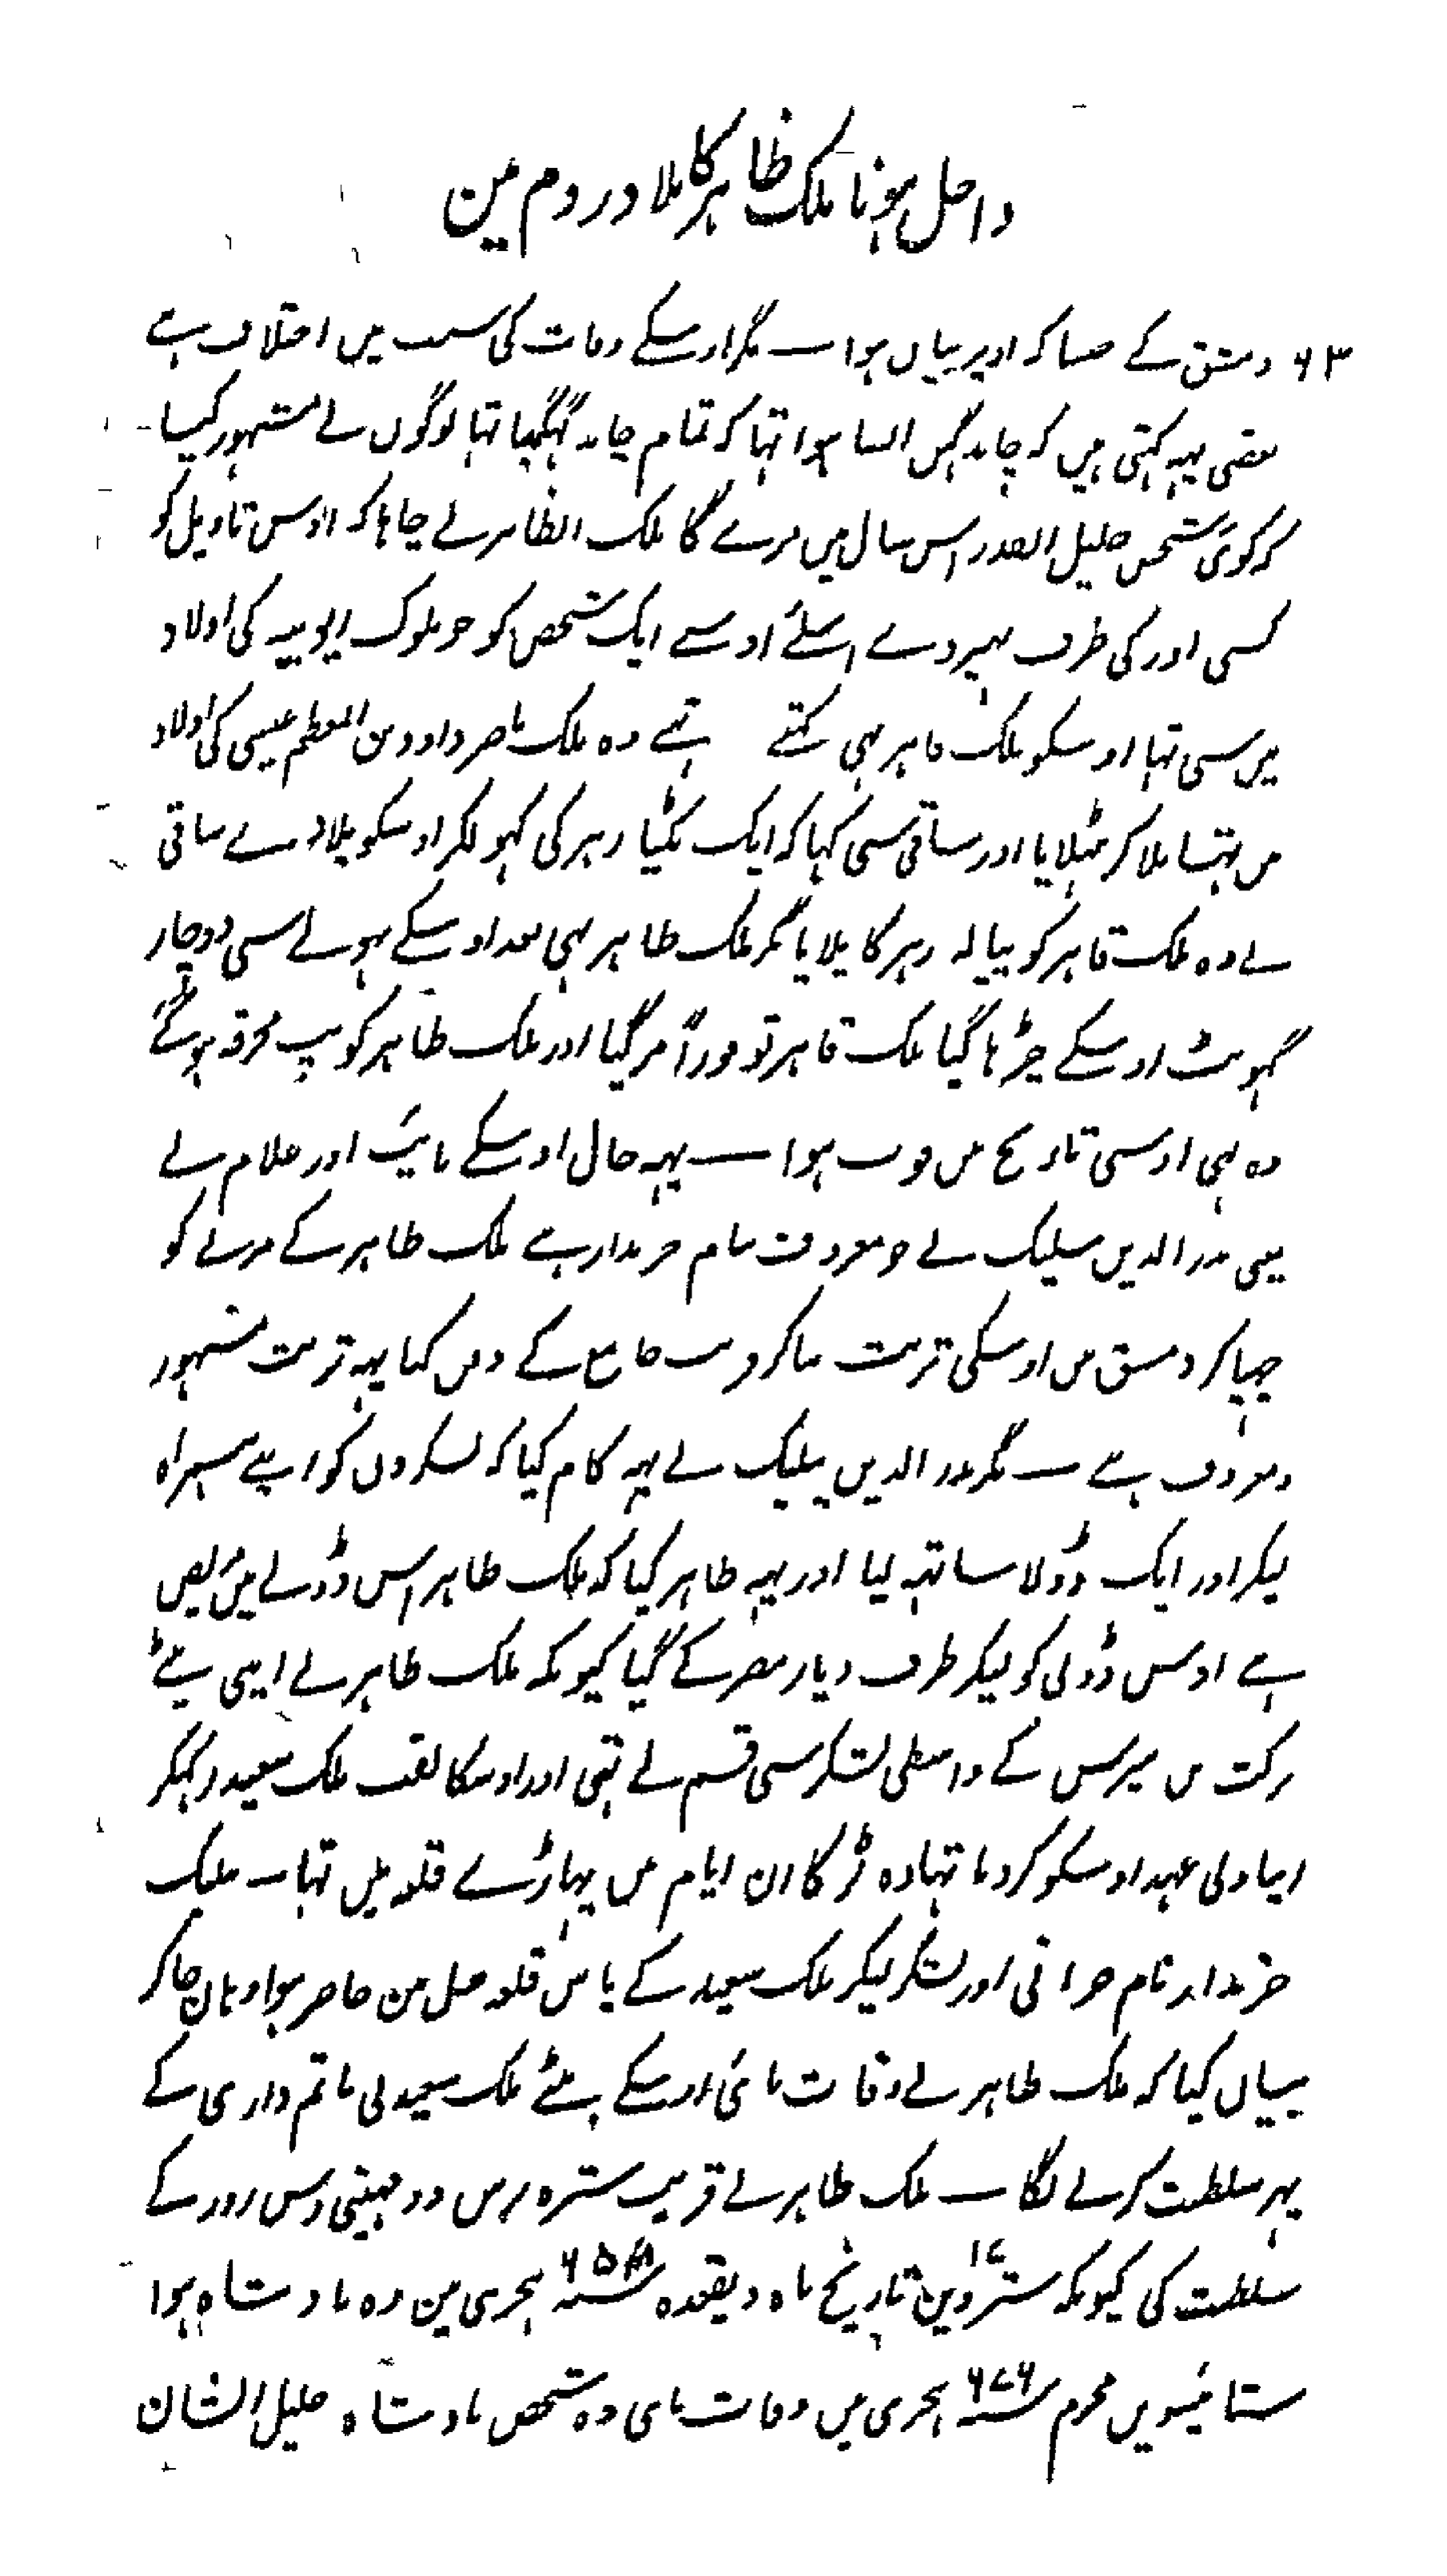 داخل ہونا ملک ظاہر کا بلاد روم مین
۶۳ دمشق کے جیسا کہ اوپر بیاں ہوا ـــ مگر اوسکے وفات کی سبب میں اختلاف ہے
بعضی یہہ کہتی ہیں کہ چاند گہن ایسا ہوا تہا کہ تمام چاند گہگیا تہا لوگوں نے مشہور کیا
کہ کوئی شخص جلیل القدر اس سال میں مرے گا ملک الظاہر نے چاہا کہ اوس تاویل کو
کسی اور کی طرف پہیر دے اسلئے اوسے ایک شخص کو جو ملوک ایوبیہ کی اولاد
میں سی تہا اوسکو ملک قاہر بہی کہتے تہے وہ ملک ناصر داود بن المعظم عیسی کی اولاد
میں تہا بلا کر بٹہلایا اور ساقی سی کہا کہ ایک ٹکیا زہر کی گہولکر اوسکو پلا دے ساقی
نے وہ ملک قاہر کو پیالہ زہر کا پلایا مگر ملک ظاہر بہی بعد اوسکے ہونے سی دوچار
گہونٹ اوسکے چڑہا گیا ملک قاہر تو فوراً مر گیا اور ملک ظاہر کو تپ محرقہ ہو گئے
وہ بہی اوسی تاریخ میں فوت ہوا ـــ یہہ حال اوسکے نایب اور غلام نے
یعنی بدر الدیں بیلیک نے جو معروف بنام خزندار ہے ملک ظاہر کے مرنے کو
چہپا کر دمشق میں اوسکی تربت بنا کر قریب جامع کے دفن کیا یہہ تربت مشہور
و معروف ہے ـــ مگر بدر الدیں بیلیک نے یہہ کام کیا کہ لشکروں کو اپنے ہمراہ
لیکر اور ایک ڈولا ساتہہ لیا اور یہہ ظاہر کیا کہ ملک ظاہر اس ڈولے میں مریض
ہے اوس ڈولی کو لیکر طرف دیار مصر کے گیا کیونکہ ملک ظاہر نے اپنی بیٹے
برکت بن بیبرس کے واسطی لشکر سی قسم لے تہی اور اوسکا لقب ملک سعید رکہکر
اپنا ولی عہد اوسکو کر دیا تہا وہ لڑکا ان ایام میں پہاڑ کے قلعہ میں تہا ـــ بیلیک
خزندار تمام خزانی اور لشکر لیکر ملک سعید کے پاس قلعہ جبل مین حاضر ہوا وہان جا کر
بیاں کیا کہ ملک ظاہر نے وفات پائی اوسکے بیٹے ملک سعید نی ماتم داری کے
پہر سلطنت کرنے لگا ـــ ملک ظاہر نے قریب سترہ برس دو مہینی دس روز کے
سلطنت کی کیونکہ ستروین ۱۷ تاریخ ماہ ذیقعدہ سنہ ۶۵۸ ہجری مین وہ بادشاہ ہوا
ستائیسویں محرم سنہ ۶۷۶ ہجری میں وفات پائی وہ شخص بادشاہ جلیل الشان